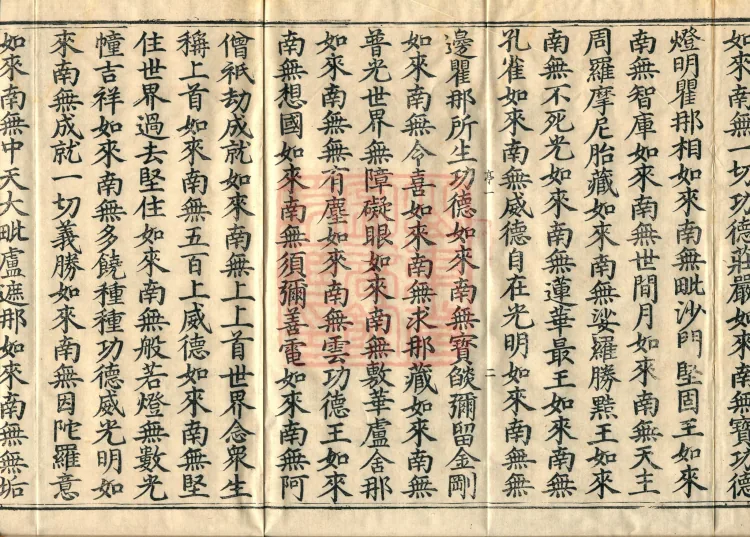 如來南無一切功德莊嚴如來南無寶功德
燈明瞿那相如來南無毗沙門堅固王如來
南無智庫如來南無世間月如來南無天主
周羅摩尼胎藏如來南無娑羅勝點王如來
南無不死光如來南無蓮華最王如來南無
孔雀如來南無威德自在光明如來南無無
邊瞿那所生功德如來南無寶燄彌留金剛
如來南無令喜如來南無求那藏如來南無
普光世界無障礙眼如來南無敷華盧舍那
如來南無無有塵如來南無雲功德王如來
南無想國如來南無須彌善電如來南無阿
僧祇劫成就如來南無上上首世界念衆生
稱上首如來南無五百上威德如來南無堅
住世界過去堅住如來南無般若燈無數光
幢吉祥如來南無多饒種種功德威光明如
來南無成就一切義勝如來南無因陀羅意
如來南無中天大毗盧遮那如來南無無垢